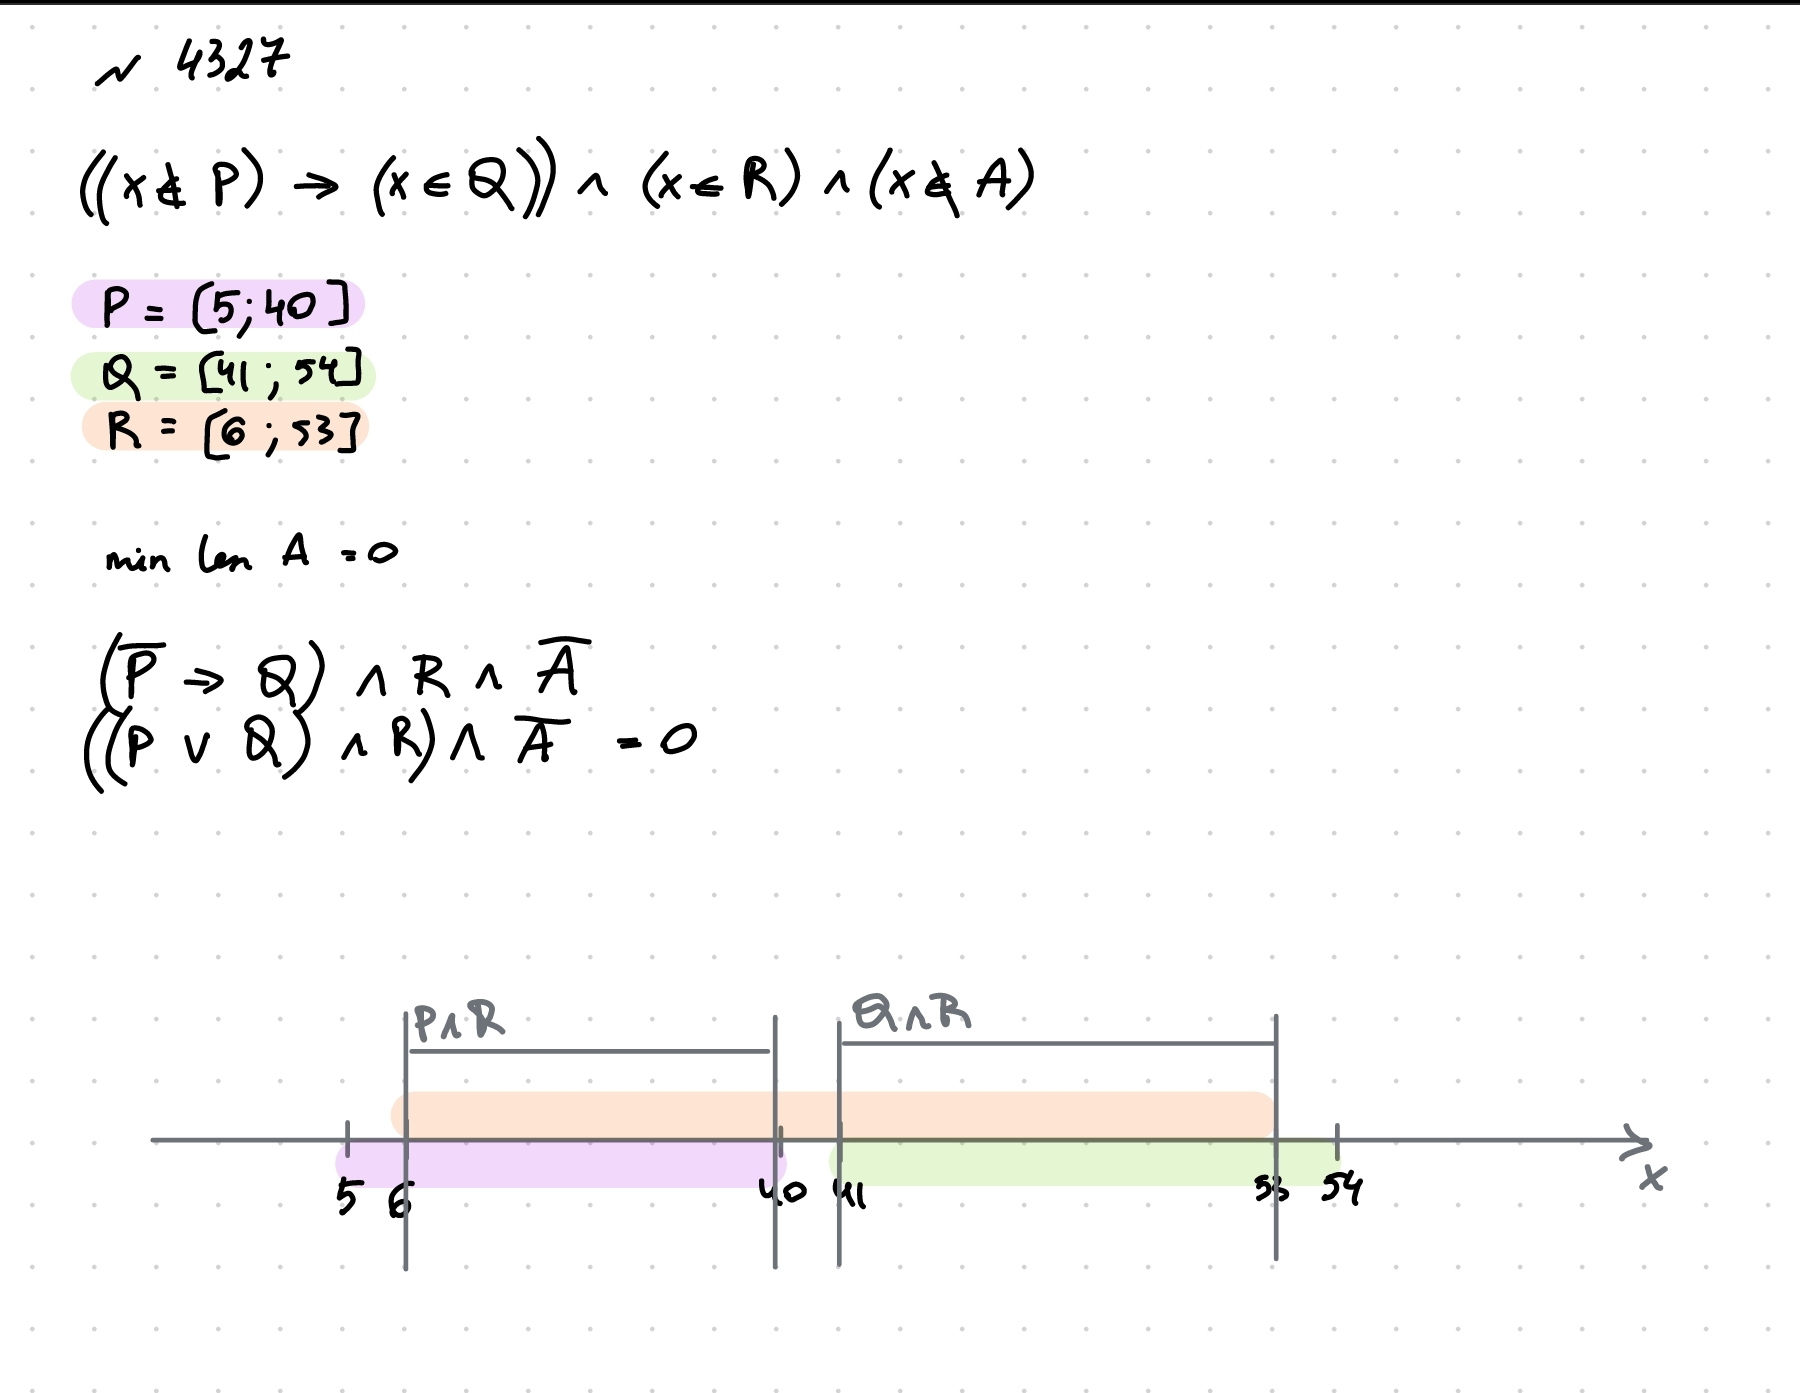 ~ 4327
((x ∉ P) → (x ∈ Q)) ∧ (x ∈ R) ∧ (x ∉ A)
P = [5; 40]
Q = [41; 54]
R = [6; 53]
min len A = 0
(P̅ → Q) ∧ R ∧ A̅
((P ∨ Q) ∧ R) ∧ A̅ = 0
P∧R Q∧R
5 6 40 41 53 54 x